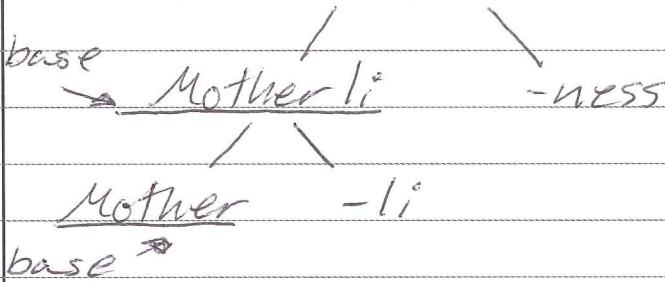 base
Motherli -ness
Mother -li
base